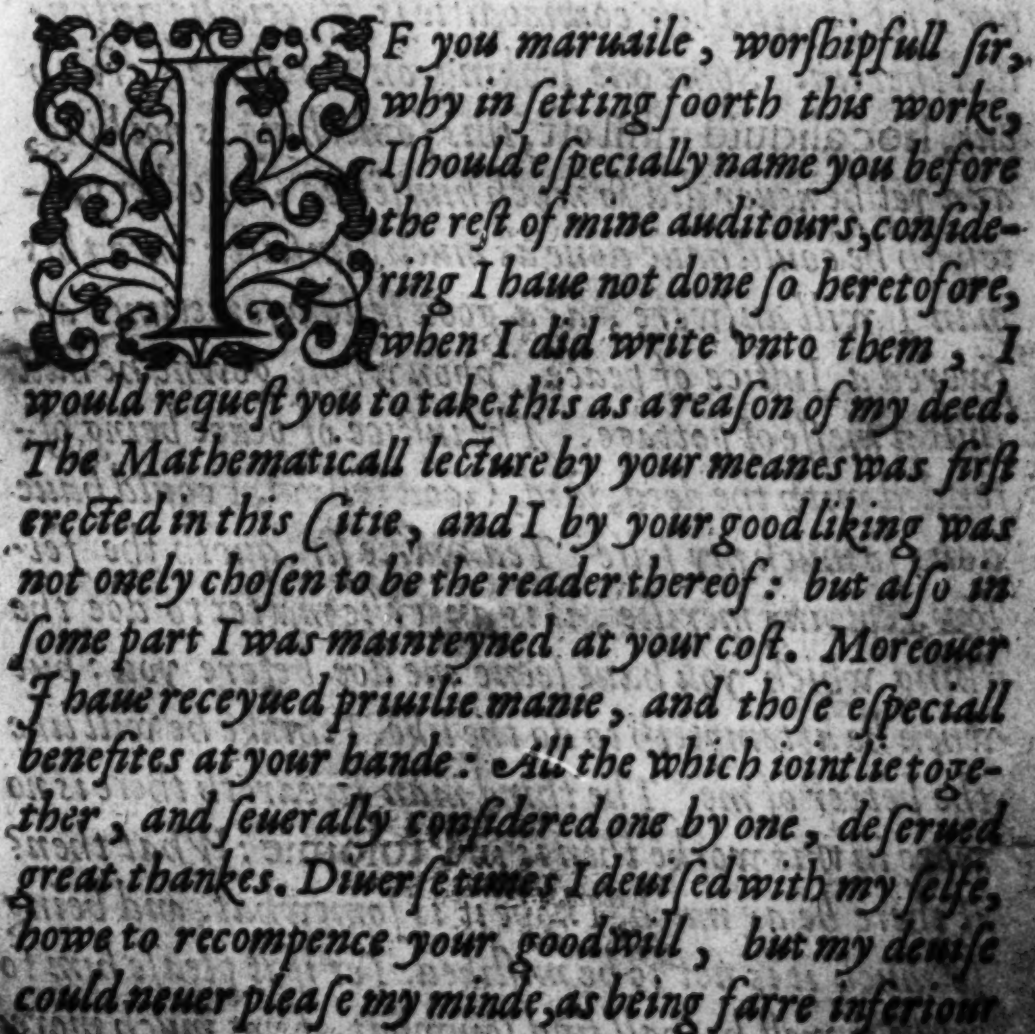 IF you maruaile, worſhipfull ſir,
why in ſetting foorth this worke,
I ſhould eſpecially name you before
the reſt of mine auditours, conſide-
ring I haue not done ſo heretofore,
when I did write vnto them, I
would requeſt you to take this as a reaſon of my deed.
The Mathematicall lecture by your meanes was firſt
erected in this Citie, and I by your good liking was
not onely choſen to be the reader thereof: but alſo in
ſome part I was mainteyned at your coſt. Moreouer
I haue receyued priuilie manie, and thoſe eſpeciall
benefites at your hande: All the which iointlie toge-
ther, and ſeuerally conſidered one by one, deſerued
great thankes. Diuerſe times I deuiſed with my ſelfe,
howe to recompence your good will, but my deuiſe
could neuer pleaſe my minde, as being farre inferiour